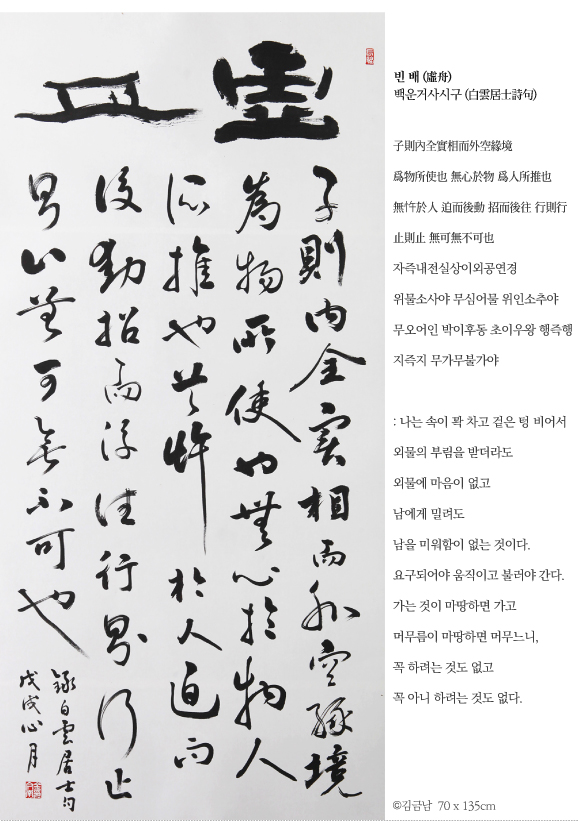 虛舟
子則内全實相而外空緣境
為物所使也無心於物人
所推也無忤於人迫而
後動招而後往行則行止
則止無可無不可也
錄白雲居士句
戊戌心月
빈 배 (虛舟)
백운거사시구 (白雲居士詩句)
子則內全實相而外空緣境
爲物所使也 無心於物 爲人所推也
無忤於人 迫而後動 招而後往 行則行
止則止 無可無不可也
자즉내전실상이외공연경
위물소사야 무심어물 위인소추야
무오어인 박이후동 초이우왕 행즉행
지즉지 무가무불가야
: 나는 속이 꽉 차고 겉은 텅 비어서
외물의 부림을 받더라도
외물에 마음이 없고
남에게 밀려도
남을 미워함이 없는 것이다.
요구되어야 움직이고 불러야 간다.
가는 것이 마땅하면 가고
머무름이 마땅하면 머무느니,
꼭 하려는 것도 없고
꼭 아니 하려는 것도 없다.
©김금남 70 x 135cm